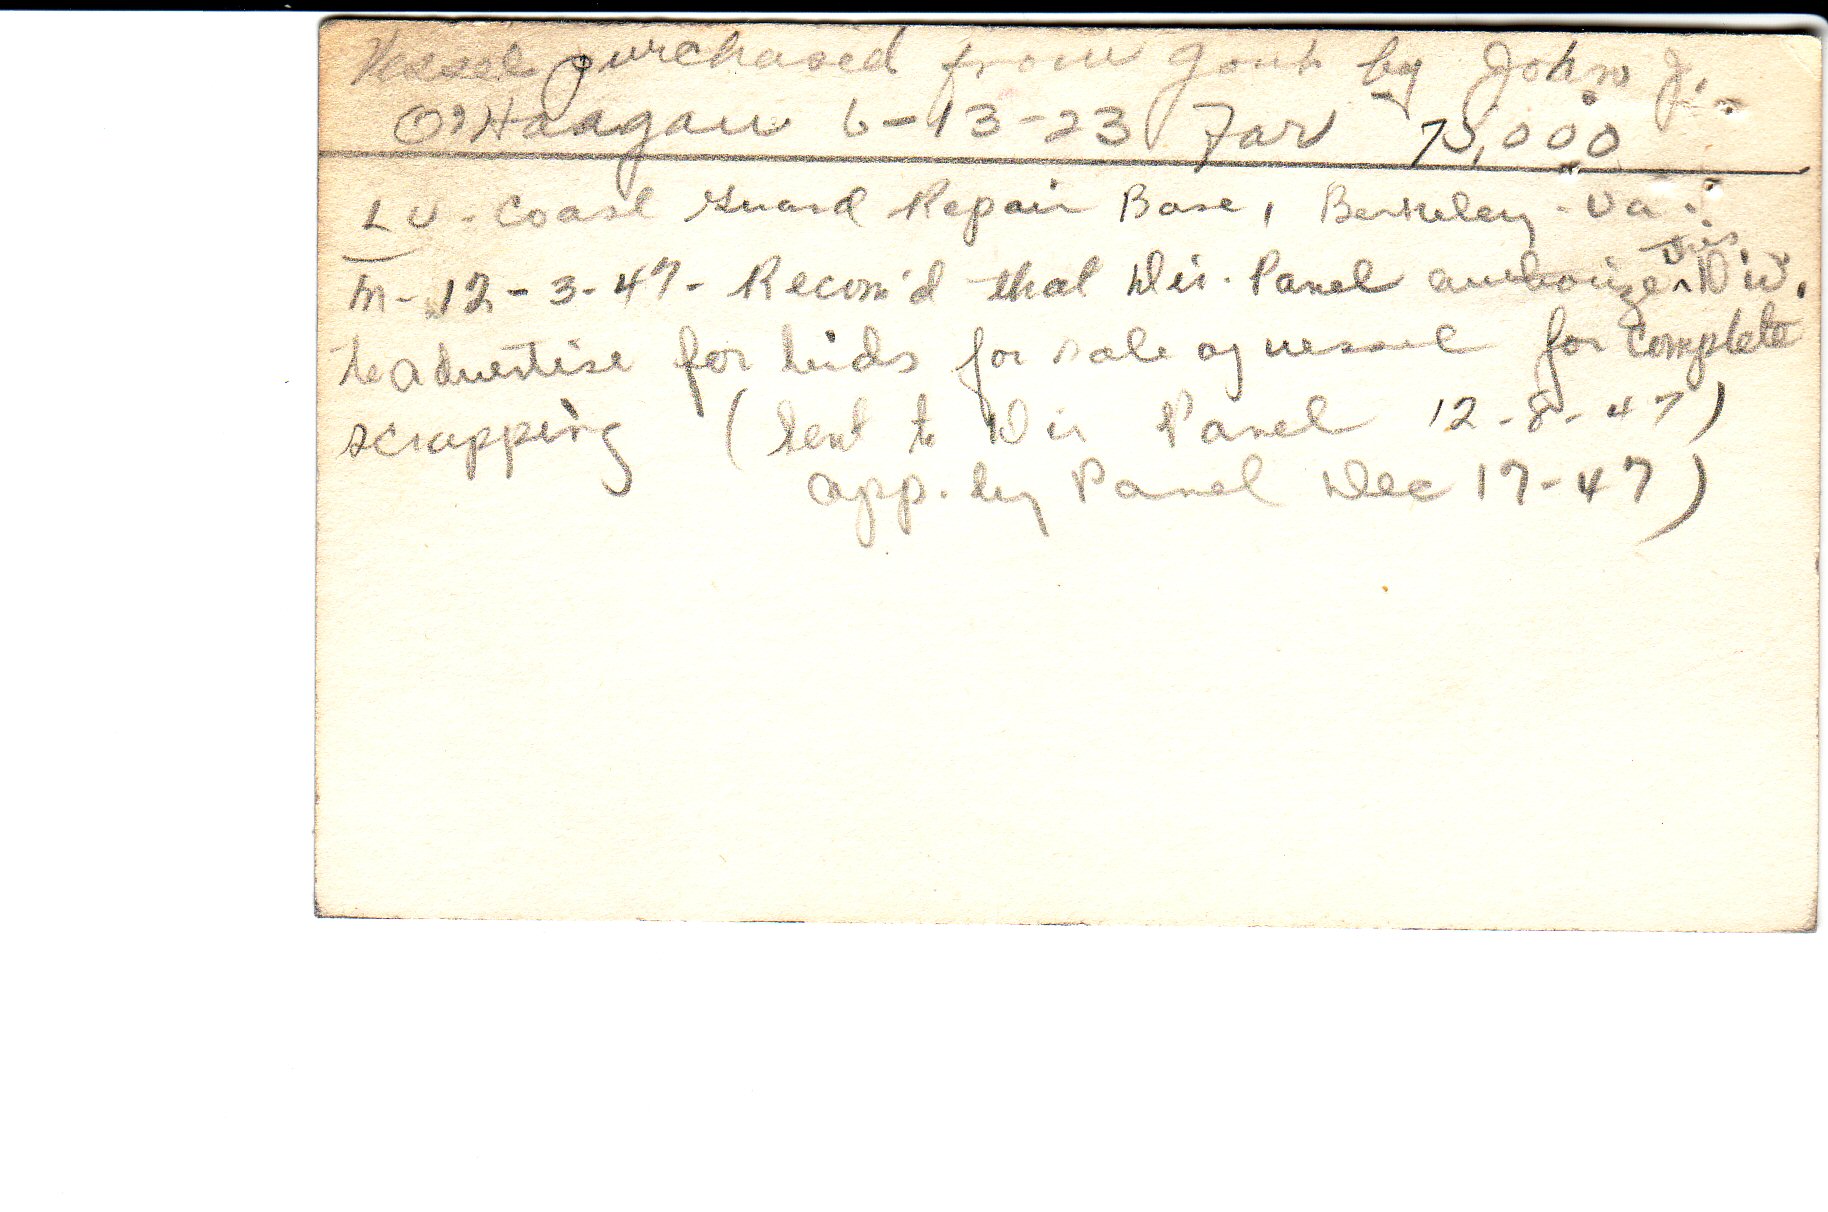 Vessel purchased from Govt by John J.
O'Haagan 6-13-23 For 75,000
LU - Coast Guard Repair Base, Berkeley - Va.
M - 12-3-47 - Recom'd that Dir. Panel authorize this Div.
to advertise for bids for sale of vessel for complete
scrapping (Sent to Dir Panel 12-8-47)
app. by Panel Dec 17-47)